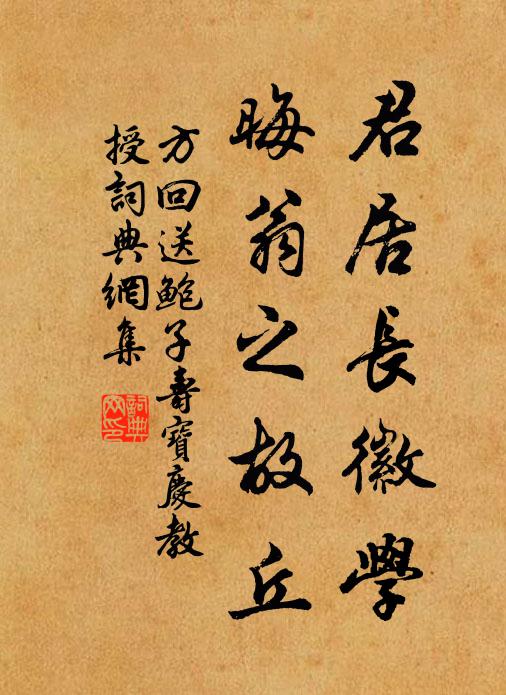 君居長徽學
晦翁之故丘
方回送鮑子壽寶慶教
授詞典網集
詞典網印